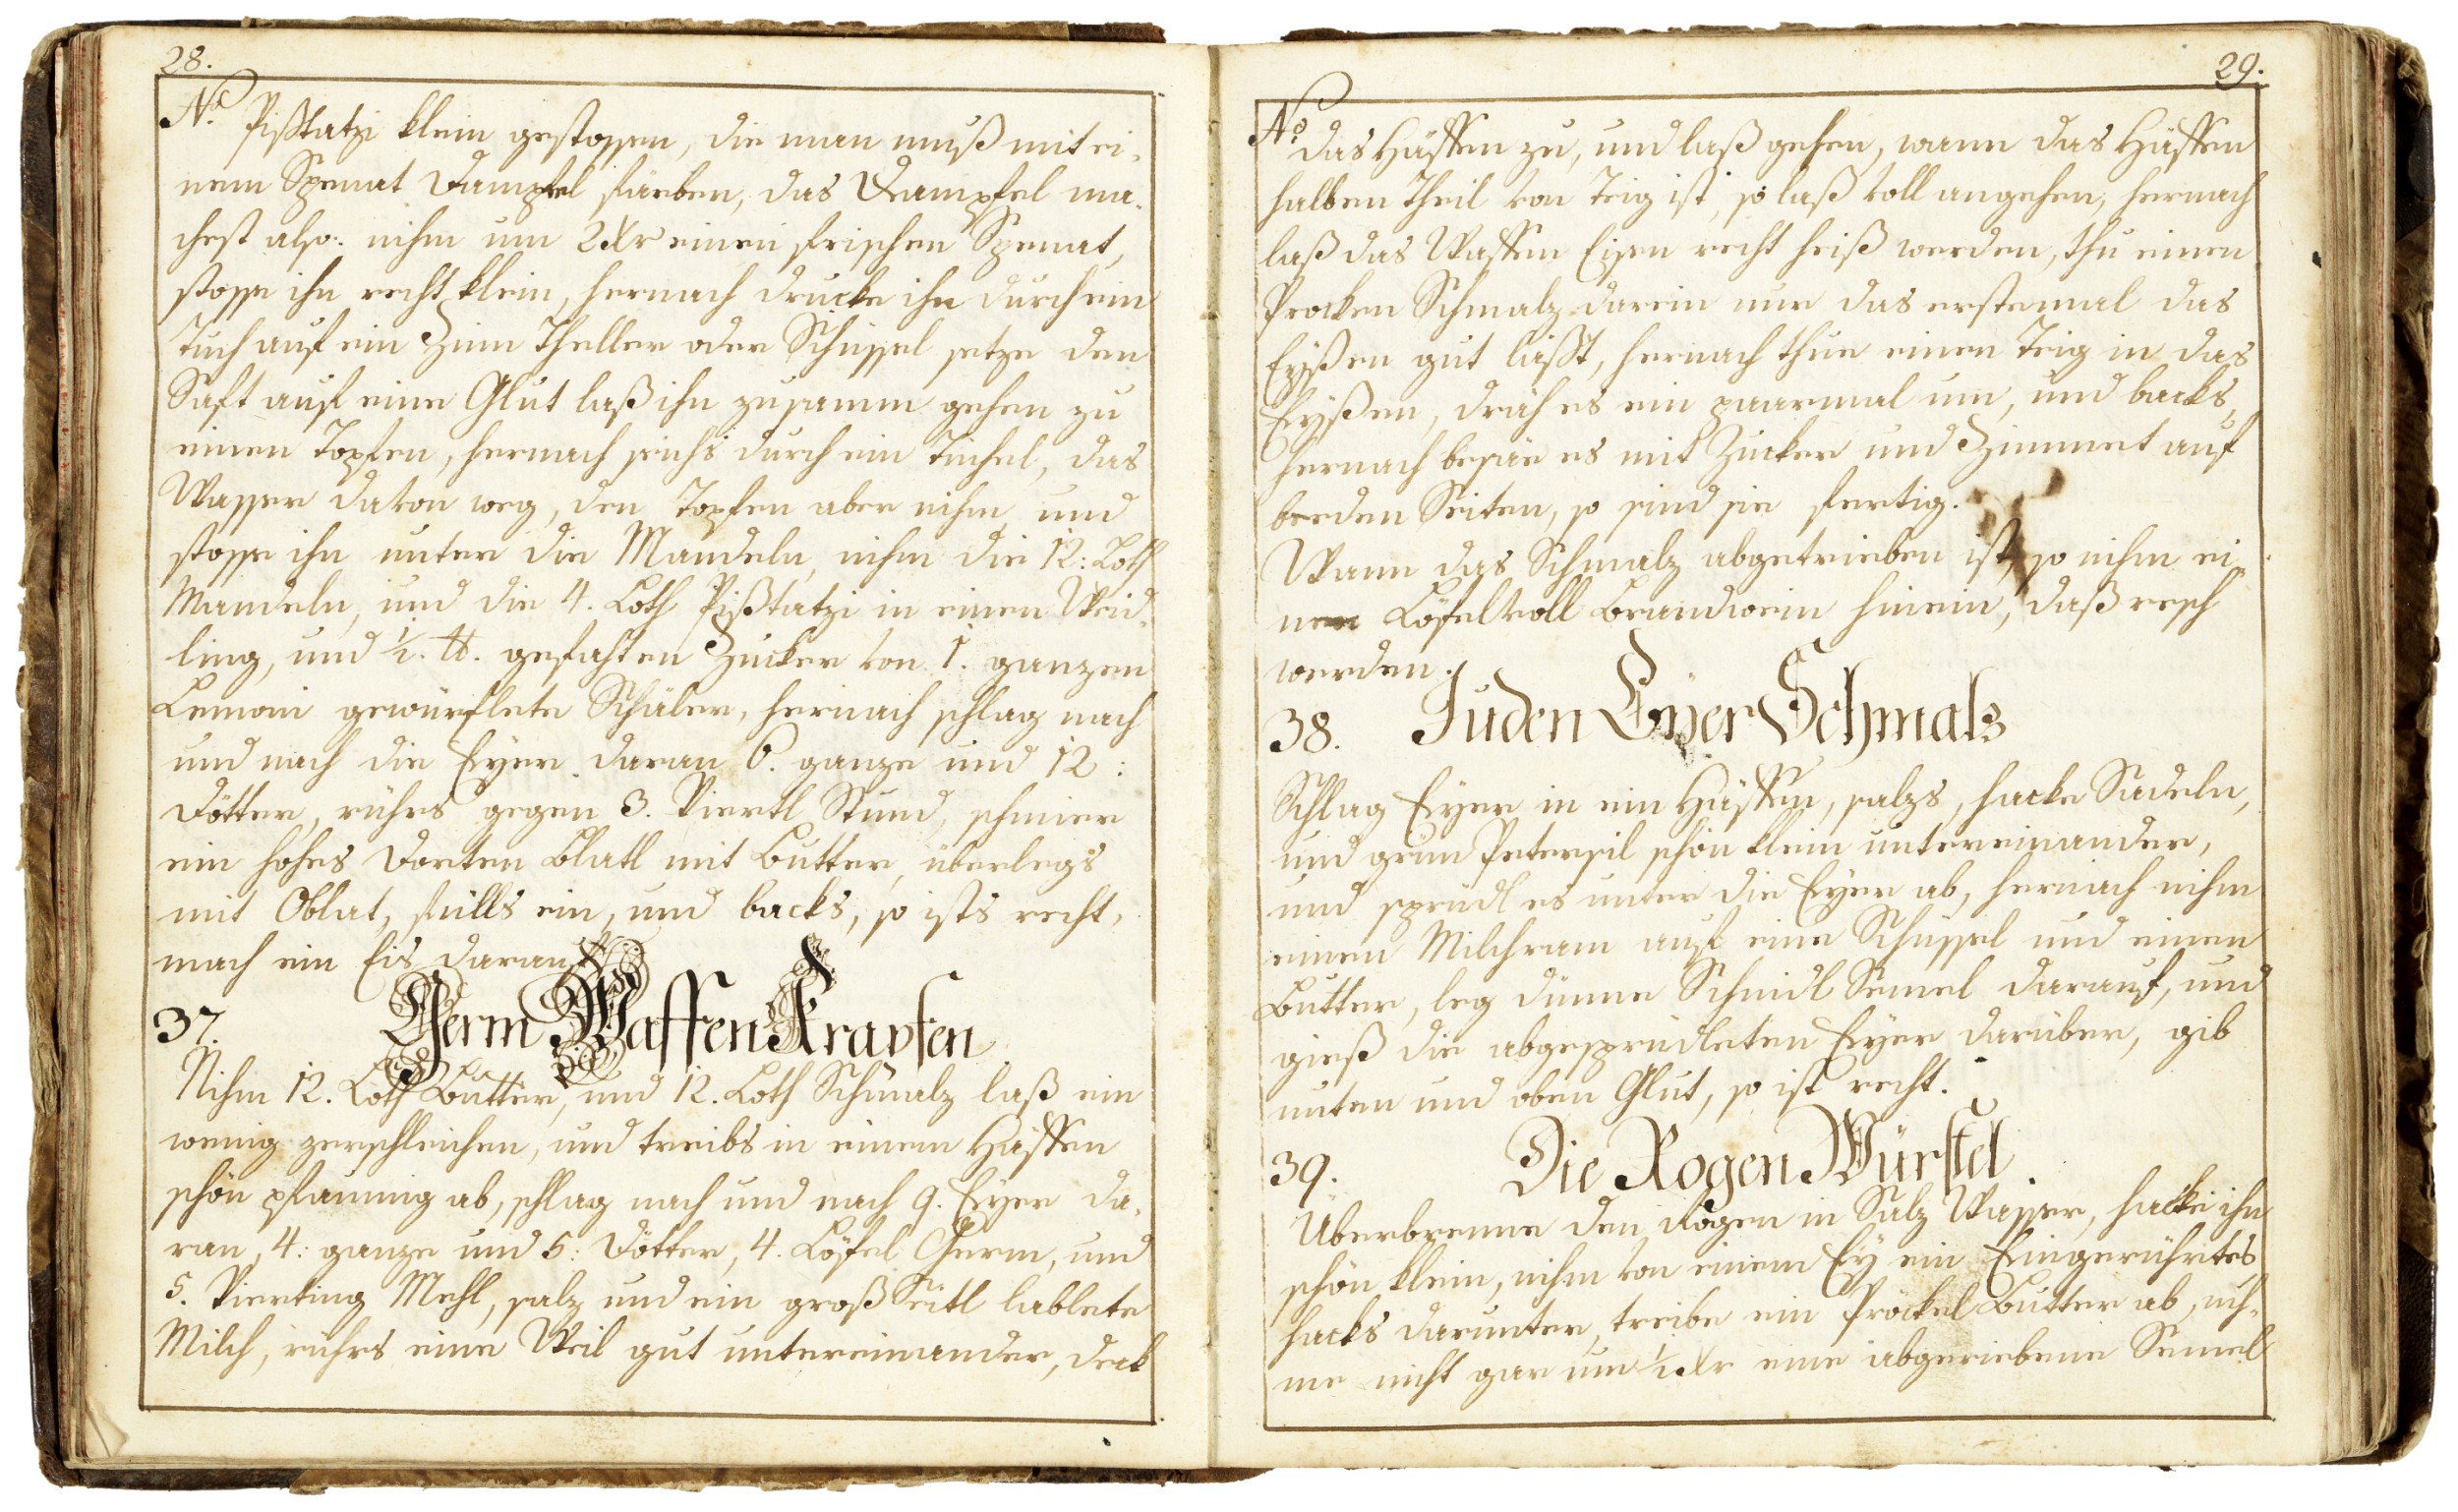 28.
No. Pisstatzi klein gestossen, die man muß mit ei-
nem Spenat Dampfel färben, das Dampfel ma-
chest also: nihm um 2 Xr einen frischen Spenat,
stosse ihn recht klein, hernach drucke ihn durch ein
Tuch auf ein Zinn Theller oder Schüssel setze den
Saft auf eine Glut laß ihn zusamm gehen zu
einen Topfen, hernach seichs durch ein Tüchel, das
Wasser davon weg, den Topfen aber nihm und
stosse ihn unter die Mandeln, nihm die 12: Loth
Mandeln, und die 4. Loth Pißtatzi in einen Weid-
ling, und ½. ℔. gefähten Zucker von 1. ganzen
Lemoni gewürflete Schäler, hernach schlag nach
und nach die Eyer daran 6. ganze und 12:
Dötter, rührs gegen 3. Viertl Stund, schmier
ein hohes Dorten Blatl mit Butter, überlegs
mit Oblat, fülls ein, und backs, so ists recht,
mach ein Eis darauf.
37. Germ Waffen Krapfen
Nihm 12. Loth Butter, und 12. Loth Schmalz laß ein
wenig zerschleichen, und treibs in einem Häffen
schön pflaumig ab, schlag nach und nach 9. Eyer da-
ran, 4: ganze und 5: Dötter, 4. Löffel Germ, und
5. Vierting Mehl, salz und ein groß Seitl lablete
Milch, rührs eine Weil gut untereinander, deck
29.
No. das Häffen zu, und laß gehen, wann das Häffen
halben Theil von Teig ist, so laß voll angehen, hernach
laß das Waffen Eisen recht heiß werden, thu einen
Brocken Schmalz darein nur das erstemal das
Eyßen gut läßt, hernach thue einen Teig in das
Eyßen, dräh es ein paarmal um, und backs,
hernach besäe es mit Zucker und Zimmet auf
beeden Seiten, so sind sie fertig.
Wann das Schmalz abgetrieben ist, so nihm ei-
nen Löfelvoll Brandwein hinein, daß resch
werden.
38. Juden Eÿer Schmalz
Schlag Eyer in ein Häffen, salzs, hacke Sadeln,
und grün Petersil schön klein untereinander,
und sprudl es unter die Eyer ab, hernach nihm
einen Milchram auf eine Schüssel und einen
Butter, leg dünne Schnidl Semel darauf, und
gieß die abgesprudleten Eyer darüber, gib
unten und oben Glut, so ist recht.
39. Die Rogen Würstel.
Überbrenne den Rogen in Salz Wasser, hacke ihn
schön klein, nihm von einem Ey ein Eingerührtes
hacks darunter, treibe ein Pröckel Butter ab, nih-
me nicht gar um ½ Xr eine abgeriebene Semel